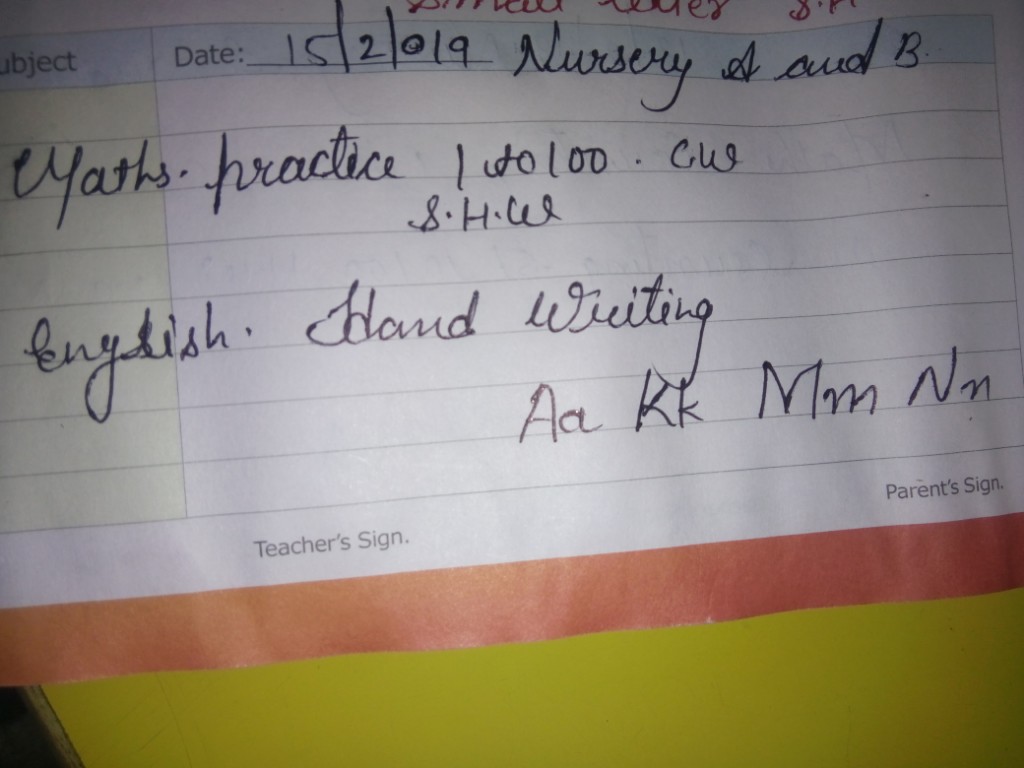 Small letter S.H
ubject Date: 15/2/019 Nursery A and B.
Maths. practice 1 to 100. CW
S.H.W
English. Hand Writing
Aa Kk Mm Nn
Parent's Sign.
Teacher's Sign.